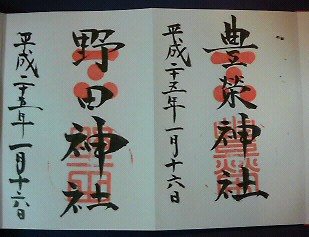 豊榮神社
平成二十五年一月十六日
野田神社
平成二十五年一月十六日